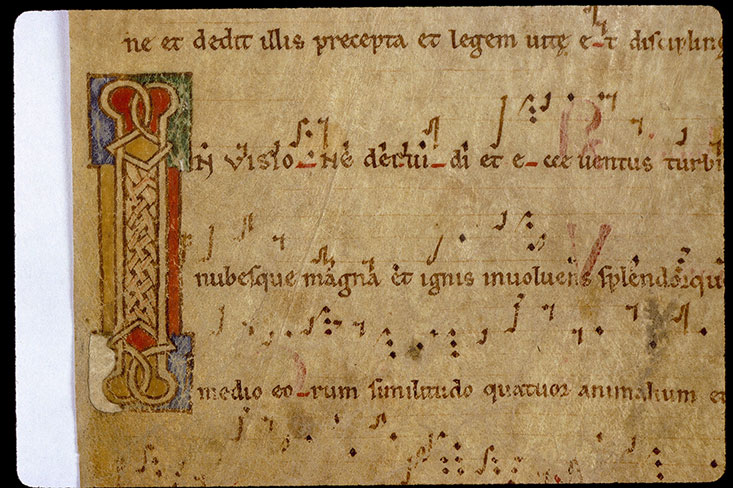 ne et dedit illis precepta et legem uitę e_t disciplinę
IN VISIONE dei uidi et e_cce uentus turbi
nubesque magna et ignis inuoluens splendorqu
medio eo_rum similitudo quatuor animalium et